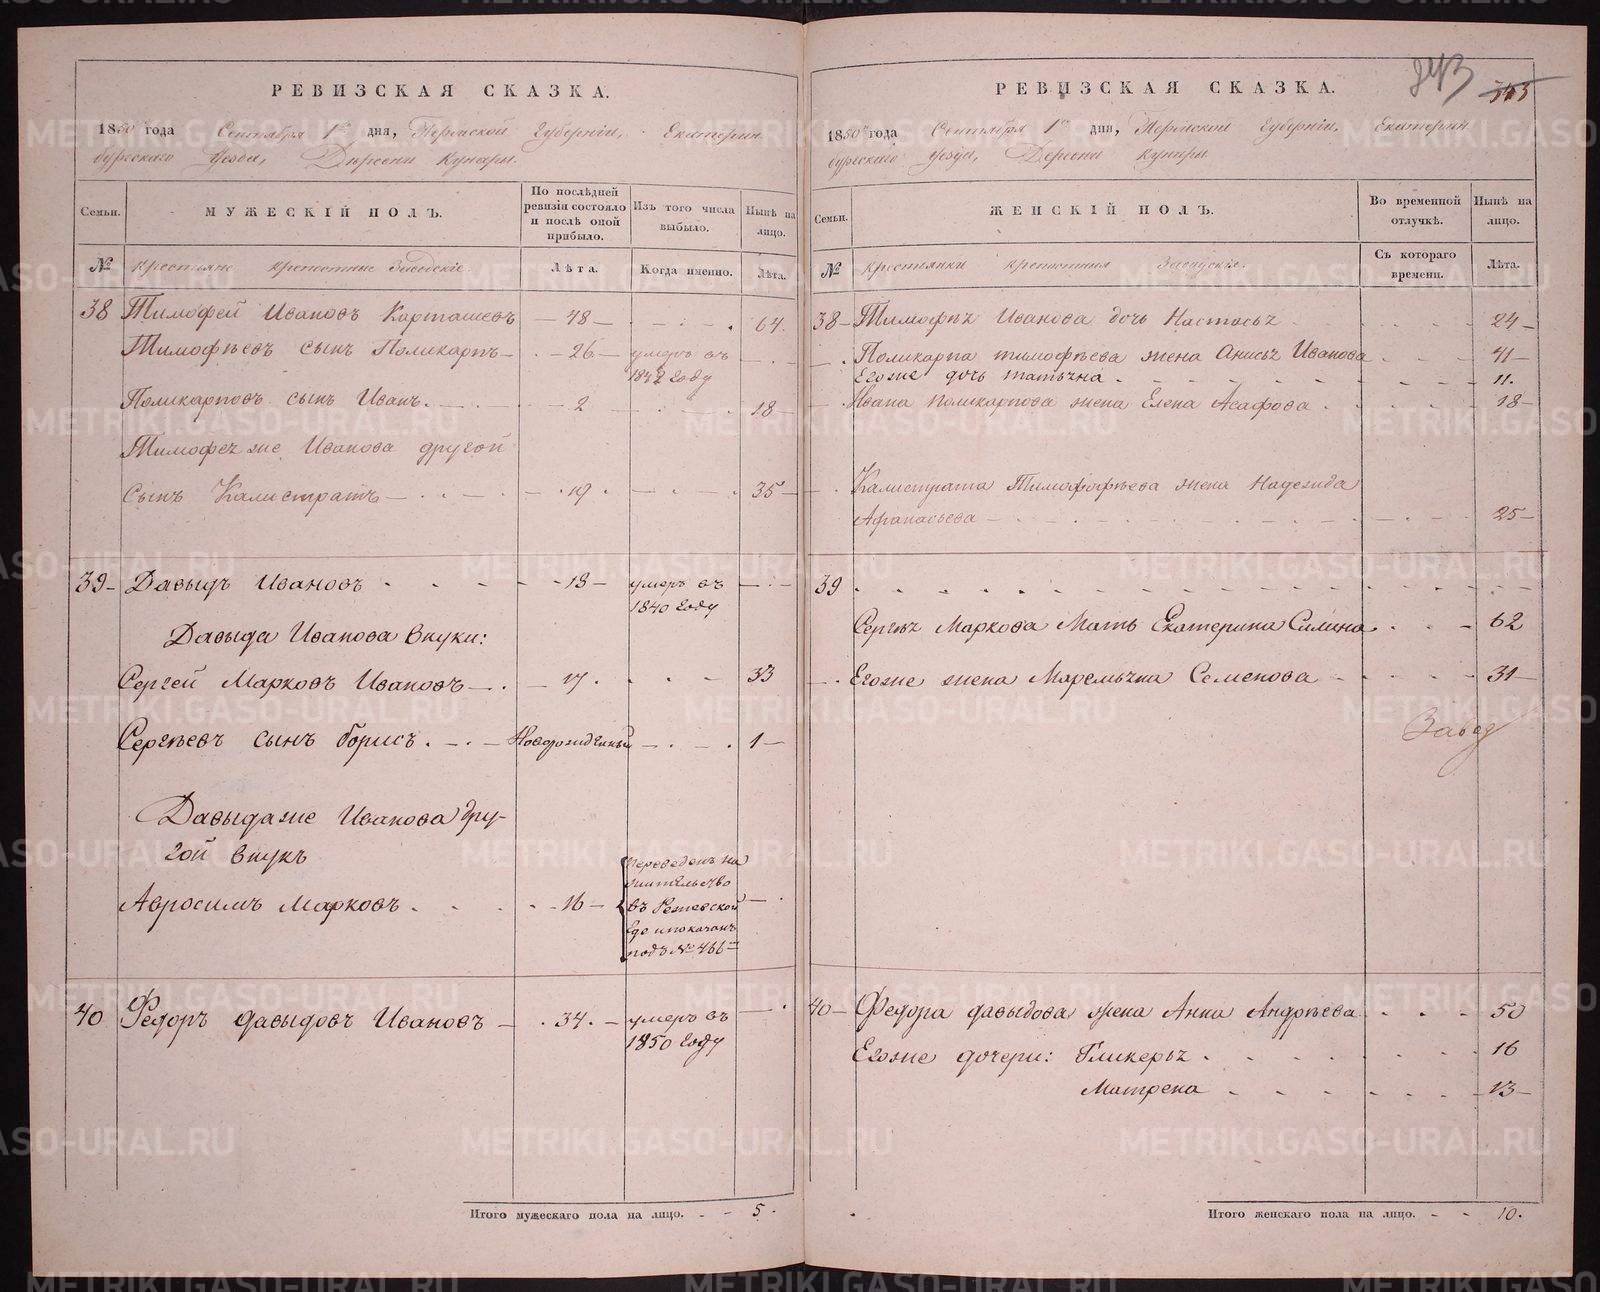 РЕВИЗСКАЯ СКАЗКА.
1850 года Сентября 1го дня, Пермской Губернiи, Екатерин
бургскаго Уезда, Деревни Кунары.
Семьи.
МУЖЕСКIЙ ПОЛЪ.
По послѣдней ревизiи состояло и послѣ оной прибыло.
Изъ того числа выбыло.
Нынѣ на лицо.
№
Крестьяне крепостные Заводскiе.
Лѣта.
Когда именно.
Лѣта.
38 Тимофей Ивановъ Карташевъ — 48 — 64.
Тимофѣевъ сынъ Поликарпъ — 26 — умеръ въ
1842 году
Поликарповъ сынъ Иванъ. — 2 18 —
Тимофеяже Иванова другой
сынъ Калистратъ — 19 . 35 —
39 — Давыдъ Ивановъ 18 — умеръ въ
1840 году
Давыда Иванова внуки:
Сергей Марковъ Ивановъ — 17. 33
Сергѣевъ сынъ борисъ. — Новорожденный 1 —
Давыдаже Иванова дру-
гой внукъ
Авросимъ Марковъ. — 16 —
Переведенъ на
жительство
въ Режевской
Где и показанъ
подъ № 466мъ
40 Федоръ давыдовъ Ивановъ — 34. — умеръ въ
1850 году
Итого мужескаго пола на лицо. — 5.
РЕВИЗСКАЯ СКАЗКА.
243
345
1850 года Сентября 1го дня, Пермской Губернiи, Екатерин
бургскаго Уезда, Деревни Кунары.
Семьи.
ЖЕНСКIЙ ПОЛЪ.
Во временной отлучкѣ.
Нынѣ на лицо.
№
Крестьянки крепостныя Заводскiя.
Съ котораго времени.
Лѣта.
38 — Тимофѣя Иванова дочь Настасья 24 —
Поликарпа тимофѣева жена Анисья Иванова 41 —
Егоже дочь татьяна. 11.
Ивана Поликарпова жена Елена Асафова. 18 —
Калистрата Тимофофѣева жена Надежда
Афанасьева — 25 —
39
Сергѣя Маркова Мать Екатерина Силина. 62
Егоже жена Маремьяна Семенова 31 —
Завод
40 — Федора давыдова жена Анна Андрѣева 50
Егоже дочери: Гликерья. 16
Матрена 13 —
Итого женскаго пола на лицо. — 10.
METRIKI.GASO-URAL.RU